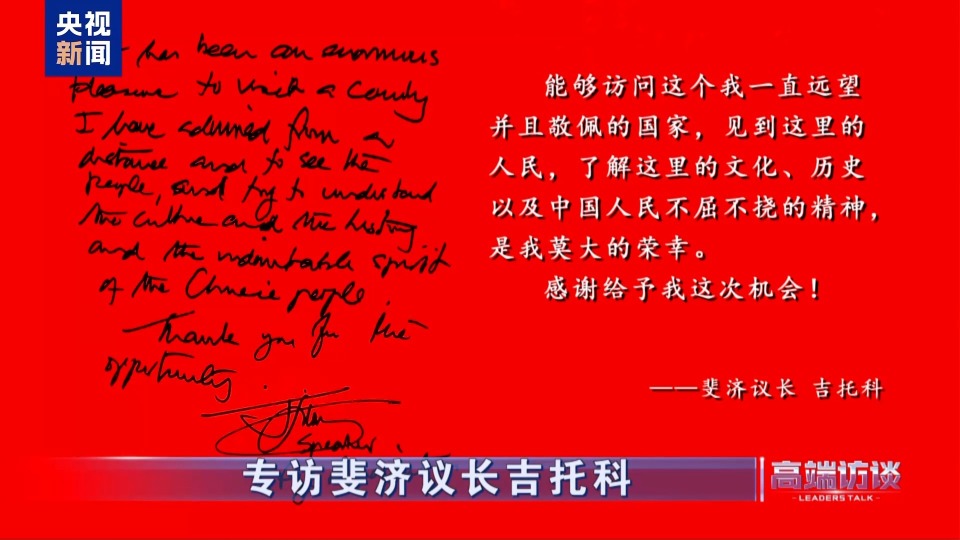 央视
新闻
has been an enormous
pleasure to visit a country
I have admired from a
distance and to see the
people, and try to understand
the culture and the history
and the indomitable spirit
of the Chinese people.
Thank you for the
opportunity.
Speaker
能够访问这个我一直远望
并且敬佩的国家，见到这里的
人民，了解这里的文化、历史
以及中国人民不屈不挠的精神，
是我莫大的荣幸。
感谢给予我这次机会！
——斐济议长 吉托科
专访斐济议长吉托科
高端访谈
LEADERS TALK